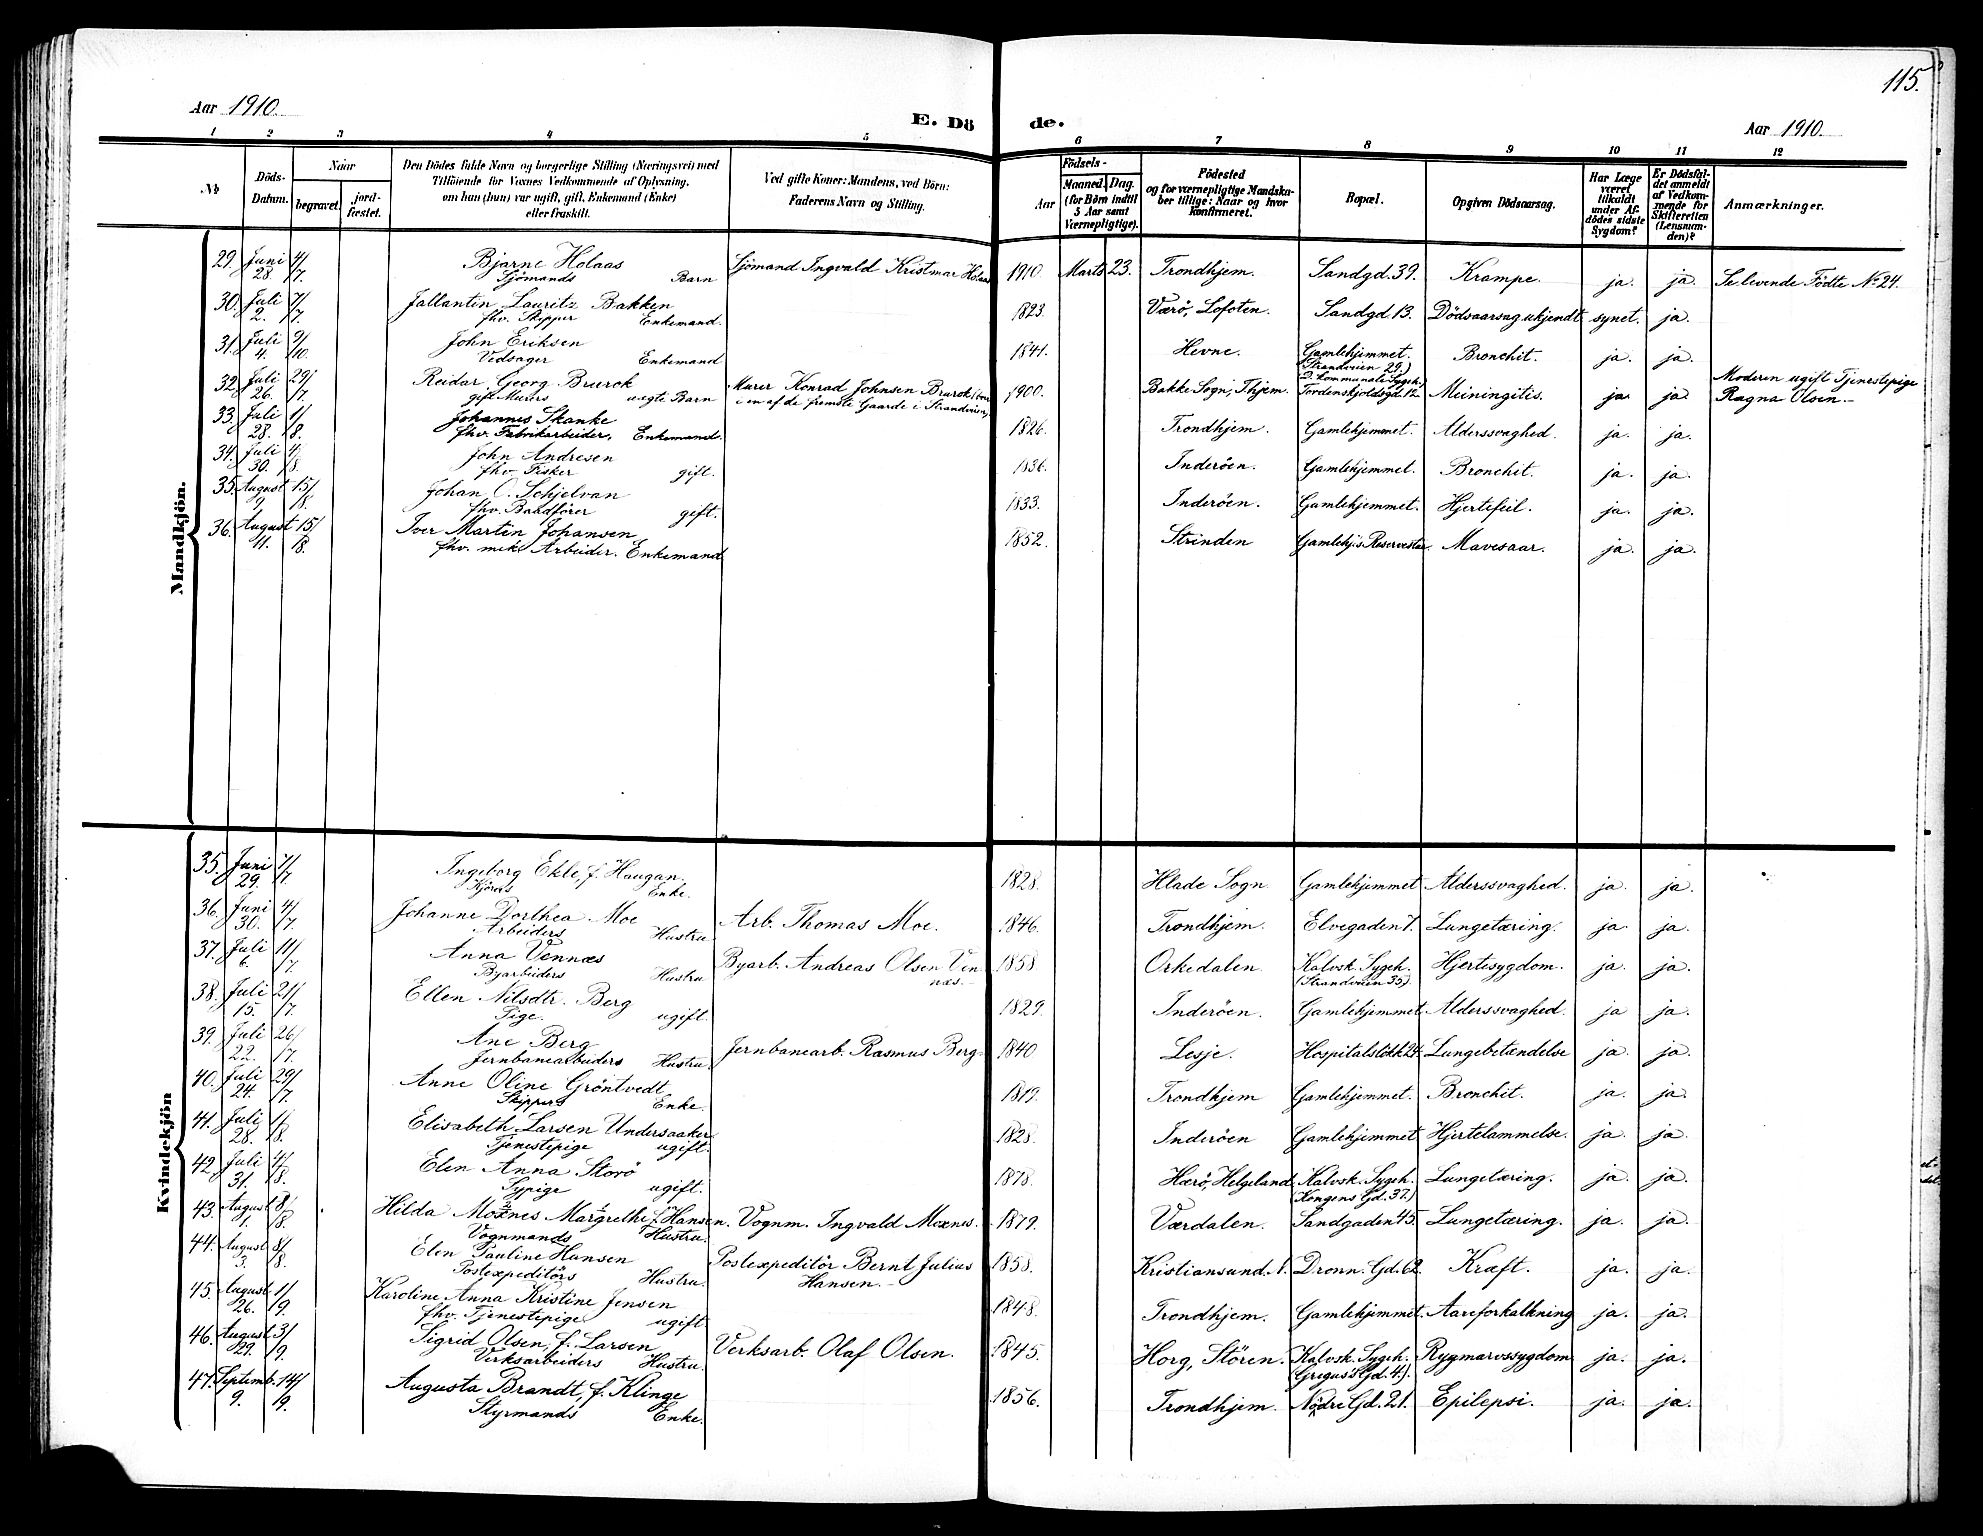 115.
Aar 1910.
E. Dö de.
Aar 1910.
1 2 3 4 5 6 7 8 9 10 11 12
No
Döds-Datum.
Naar
begravet.
jord-fæstet.
Den Dödes fulde Navn og borgerlige Stilling (Næringsvei) med
Tilföiende for Voxnes Vedkommende af Oplysning,
om hun (hun) var ugift, gift, Enkemand (Enke)
eller fraskilt.
Ved gifte Koner: Mandens, ved Börn:
Faderens Navn og Stilling.
Födsels-
Aar
Maaned. Dag.
(for Börn indtil
5 Aar samt
Værnepligtige).
Födested
og for værnepligtige Mandska-
ber tillige: Naar og hvor
konfirmeret.
Bopæl.
Opgiven Dödsaarsag.
Har Læge
været
tilkaldt
under Af-
dödes sidste
Sygdom?
Er Dödsfal-
det anmeldt
af Vedkom-
mende for
Skifteretten
(Lensman-
den)?
Anmærkninger.
Mandkjön.
29. Juni 28 4/7. Bjarne Holaas Sjömand Ingvald Kristmar Holaas 1910. Marts 23. Trondhjem. Sandgd. 39. Krampe. ja. ja. Se levende Födte No 24.
Sjömands Barn
30. Juli 2. 7/7. Jallantin Lauritz Bakken 1823. Værö, Lofoten. Sandgd. 13. Dödsaarsag ukjendt synet. ja.
fhv. Skipper Enkemand.
31. Juli 4. 9/10. John Eriksen 1841. Hevne. Gamlehjemmet. Bronchit. ja. ja.
Vedsager Enkemand (Strandveien 29.)
32. Juli 26. 29/7. Reidar Georg Brurok Murer Konrad Johnsen Brurok (bor 1900. Bakke Sogn, Thjem. Kommunale Sygeh. Meiningitis. ja. ja. Moderen ugift Tjenestepige
gift Murers uegte Barn i en af de fremste Gaarde i Strandveien) Tordenskjoldsgd. 12. Ragna Olsen.—
33. Juli 28. 1/8. Johannes Skanke 1826. Trondhjem. Gamlehjemmet. Alderssvaghed. ja. ja.
fhv. Fabrikarbeider, Enkemand.
34. Juli 30. 4/8. John Andresen 1836. Inderöen. Gamlehjemmet. Bronchit. ja. ja.
fhv. Fisker gift.
35. August 9. 15/8. Johan O. Schjelvan 1833. Inderöen. Gamlehjemmet. Hjertefeil. ja. ja.
fhv. Baadförer gift.
36. August 11. 15/8. Iver Martin Johansen 1852. Strinden Gamlehj's Reservestue. Mavesaar. ja. ja.
fhv. mek. Arbeider. Enkemand
Kvindekjön
35. Juni 29. 1/7. Ingeborg Ekle, f. Haugan. 1828. Hlade Sogn. Gamlehjemmet Alderssvaghed. ja. ja.
Kjörers Enke.
36. Juni 30. 4/7. Johanne Dorthea Moe Arb. Thomas Moe. 1846. Trondhjem. Elvegaden 7. Lungetæring. ja. ja.
Arbeiders Hustru
37. Juli 6. 11/7. Anna Vennæs Byarb. Andreas Olsen Ven- 1858. Orkedalen. Kalvsk. Sygeh. Hjertesygdom. ja. ja.
Byarbeiders Hustru næs.— (Strandveien 35).
38. Juli 15. 21/7. Ellen Nilsdtr. Berg 1829. Inderöen. Gamlehjemmet Alderssvaghed. ja. ja.
Pige. ugift.
39. Juli 22. 26/7. Ane Berg Jernbanearb. Rasmus Berg. 1840. Lesje. Hospitalslökk. 24. Lungebetændelse ja. ja.
Jernbanearbeiders Hustru.
40. Juli 24. 29/7. Anne Oline Gröntvedt 1819. Trondhjem Gamlehjemmet. Bronchit. ja. ja.
Skippers Enke.
41. Juli 28. 1/8. Elisabeth Larsen Undersaaker 1828. Inderöen Gamlehjemmet Hjertelammelse. ja. ja.
Tjenestepige ugift.
42. Juli 31. 4/8. Elen Anna Storö 1878. Hærö, Helgeland Kalvsk. Sygeh. Lungetæring. ja. ja.
Sypige ugift. (Kongens Gd. 37.)
43. August 1. 8/8. Hilda Moxnes Margrethe f. Hansen. Vognm. Ingvald Moxnes. 1879. Værdalen. Sandgaden 45. Lungetæring. ja. ja.
Vognmands Hustru.
44. August 3. 8/8. Elen Pauline Hansen Postexpeditör Bernt Julius 1858. Kristiansund. Dronn. Gd. 62. Kræft. ja. ja.
Postexpeditörs Hustru. Hansen.—
45. August 26. 1/9. Karoline Anna Kristine Jensen 1848. Trondhjem. Gamlehjemmet. Aareforkalkning ja. ja.
fhv. Tjenestepige ugift
46. August 29. 3/9. Sigrid Olsen, f. Larsen Verksarb. Olaf Olsen. 1845. Horg, Stören. Kalvsk. Sygeh. Rygmarvssygdom ja. ja.
Verksarbeiders Hustru. (Gregus's Gd. 4.)
47. Septemb. 9. 14/9. Augusta Brandt, f. Klinge 1856. Trondhjem. Nedre Gd. 21. Epilepsi. ja. ja.
Styrmands Enke.